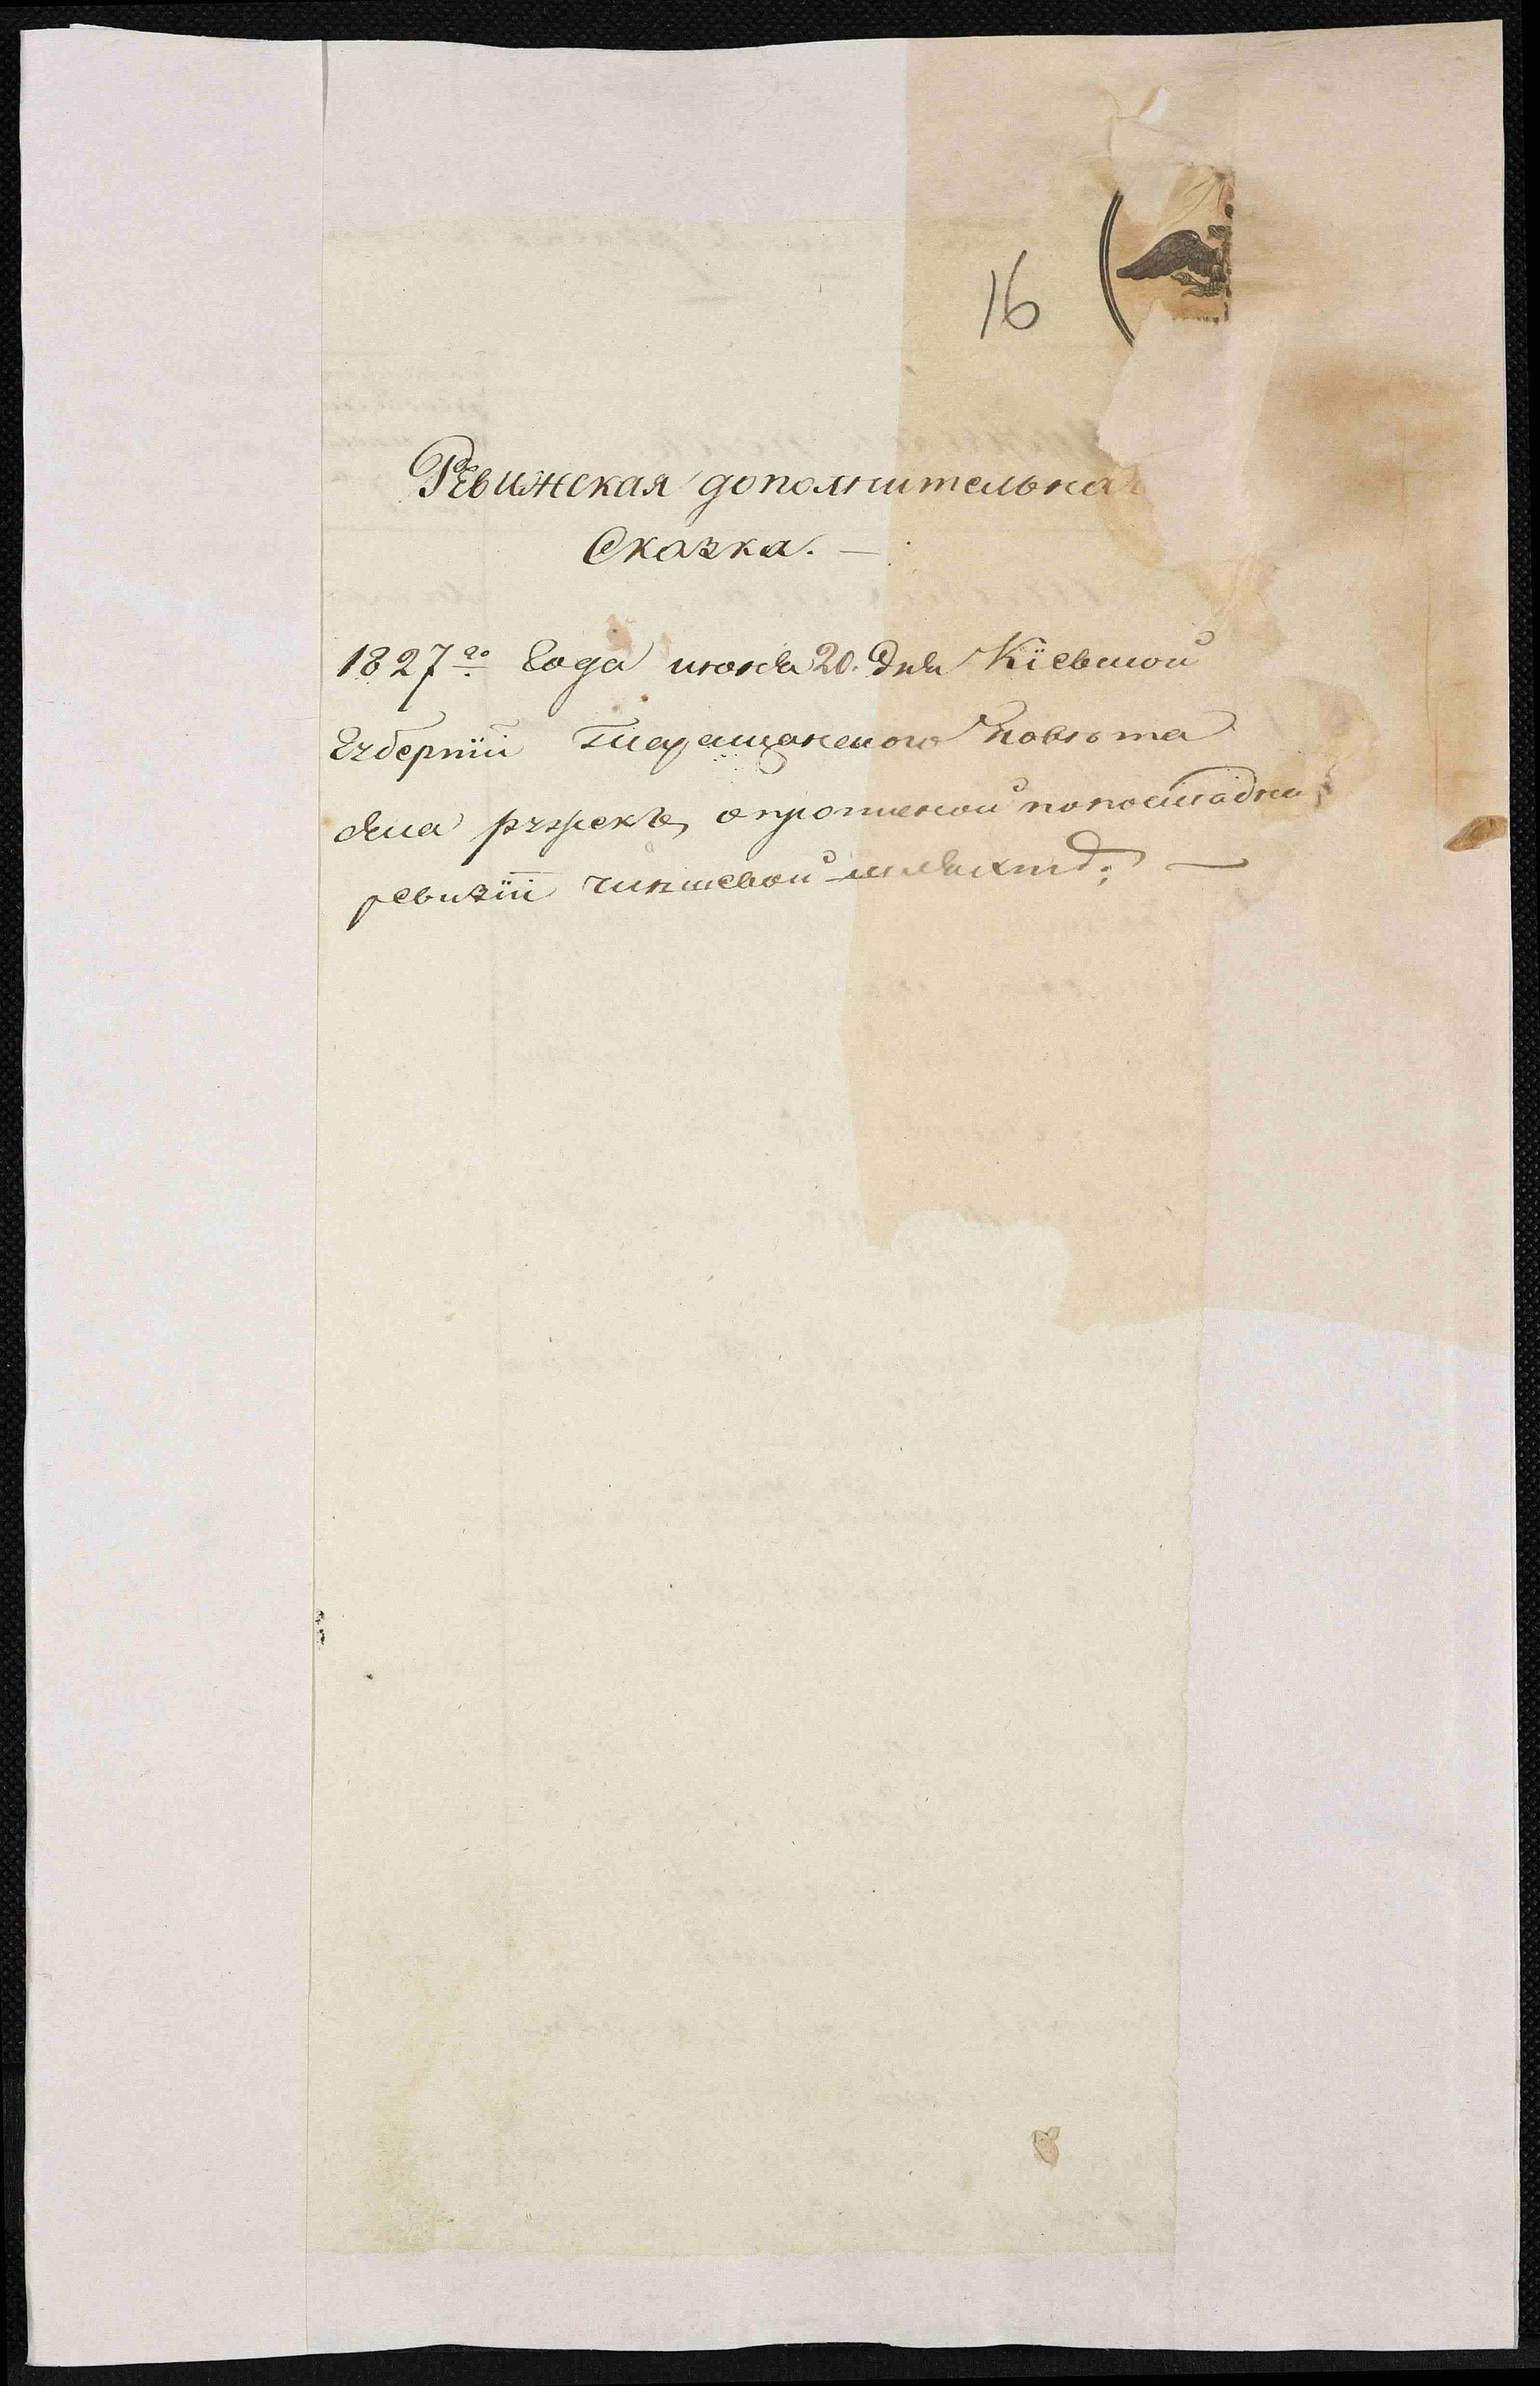 16
Ревижская дополнительная
Сказка. —
1827го Года июня 20. дня Кіевской
Губерніи Таращанского Повѣта
села о пропшеной по последней
ревизіи чиншевой шляхтѣ; —